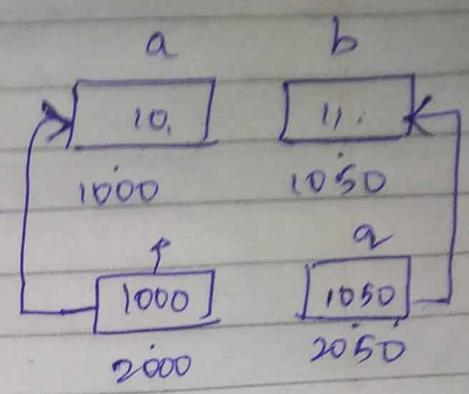 a b
10. 11.
1000 1050
p q
1000 1050
2000 2050